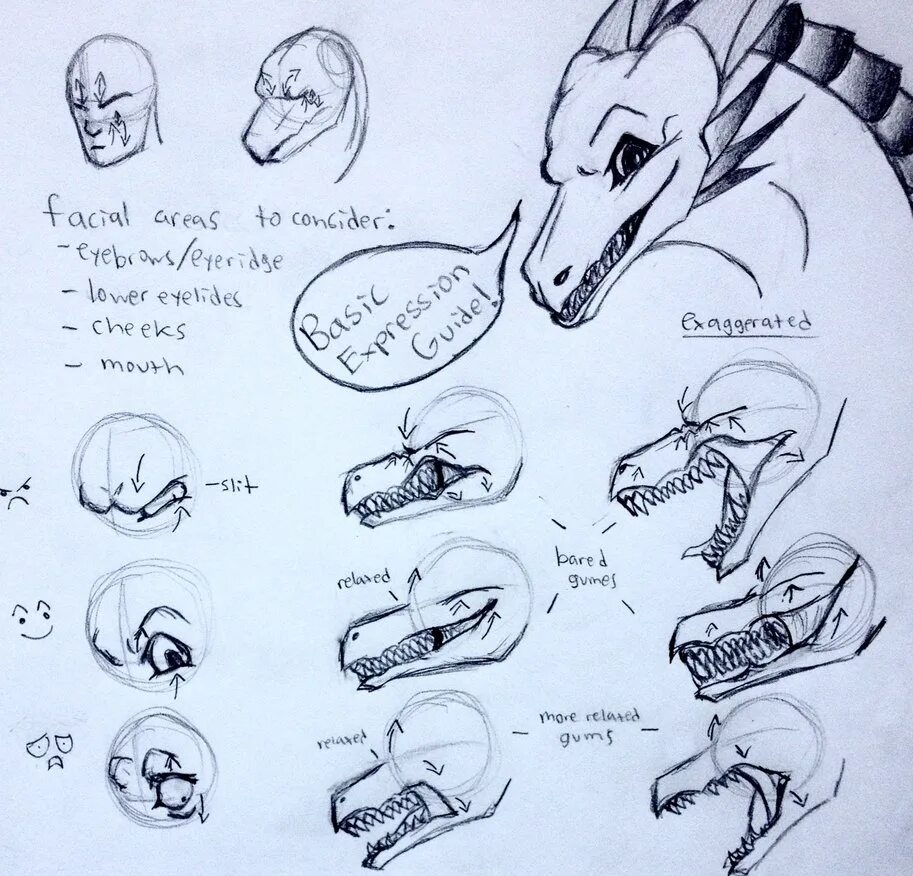 facial areas to consider:
- eyebrows/eyeridge
- lower eyelides
- cheeks
- mouth
Basic
Expression
Guide!
exaggerated
- slit
relaxed
bared
gumes
relaxed
more related
gums